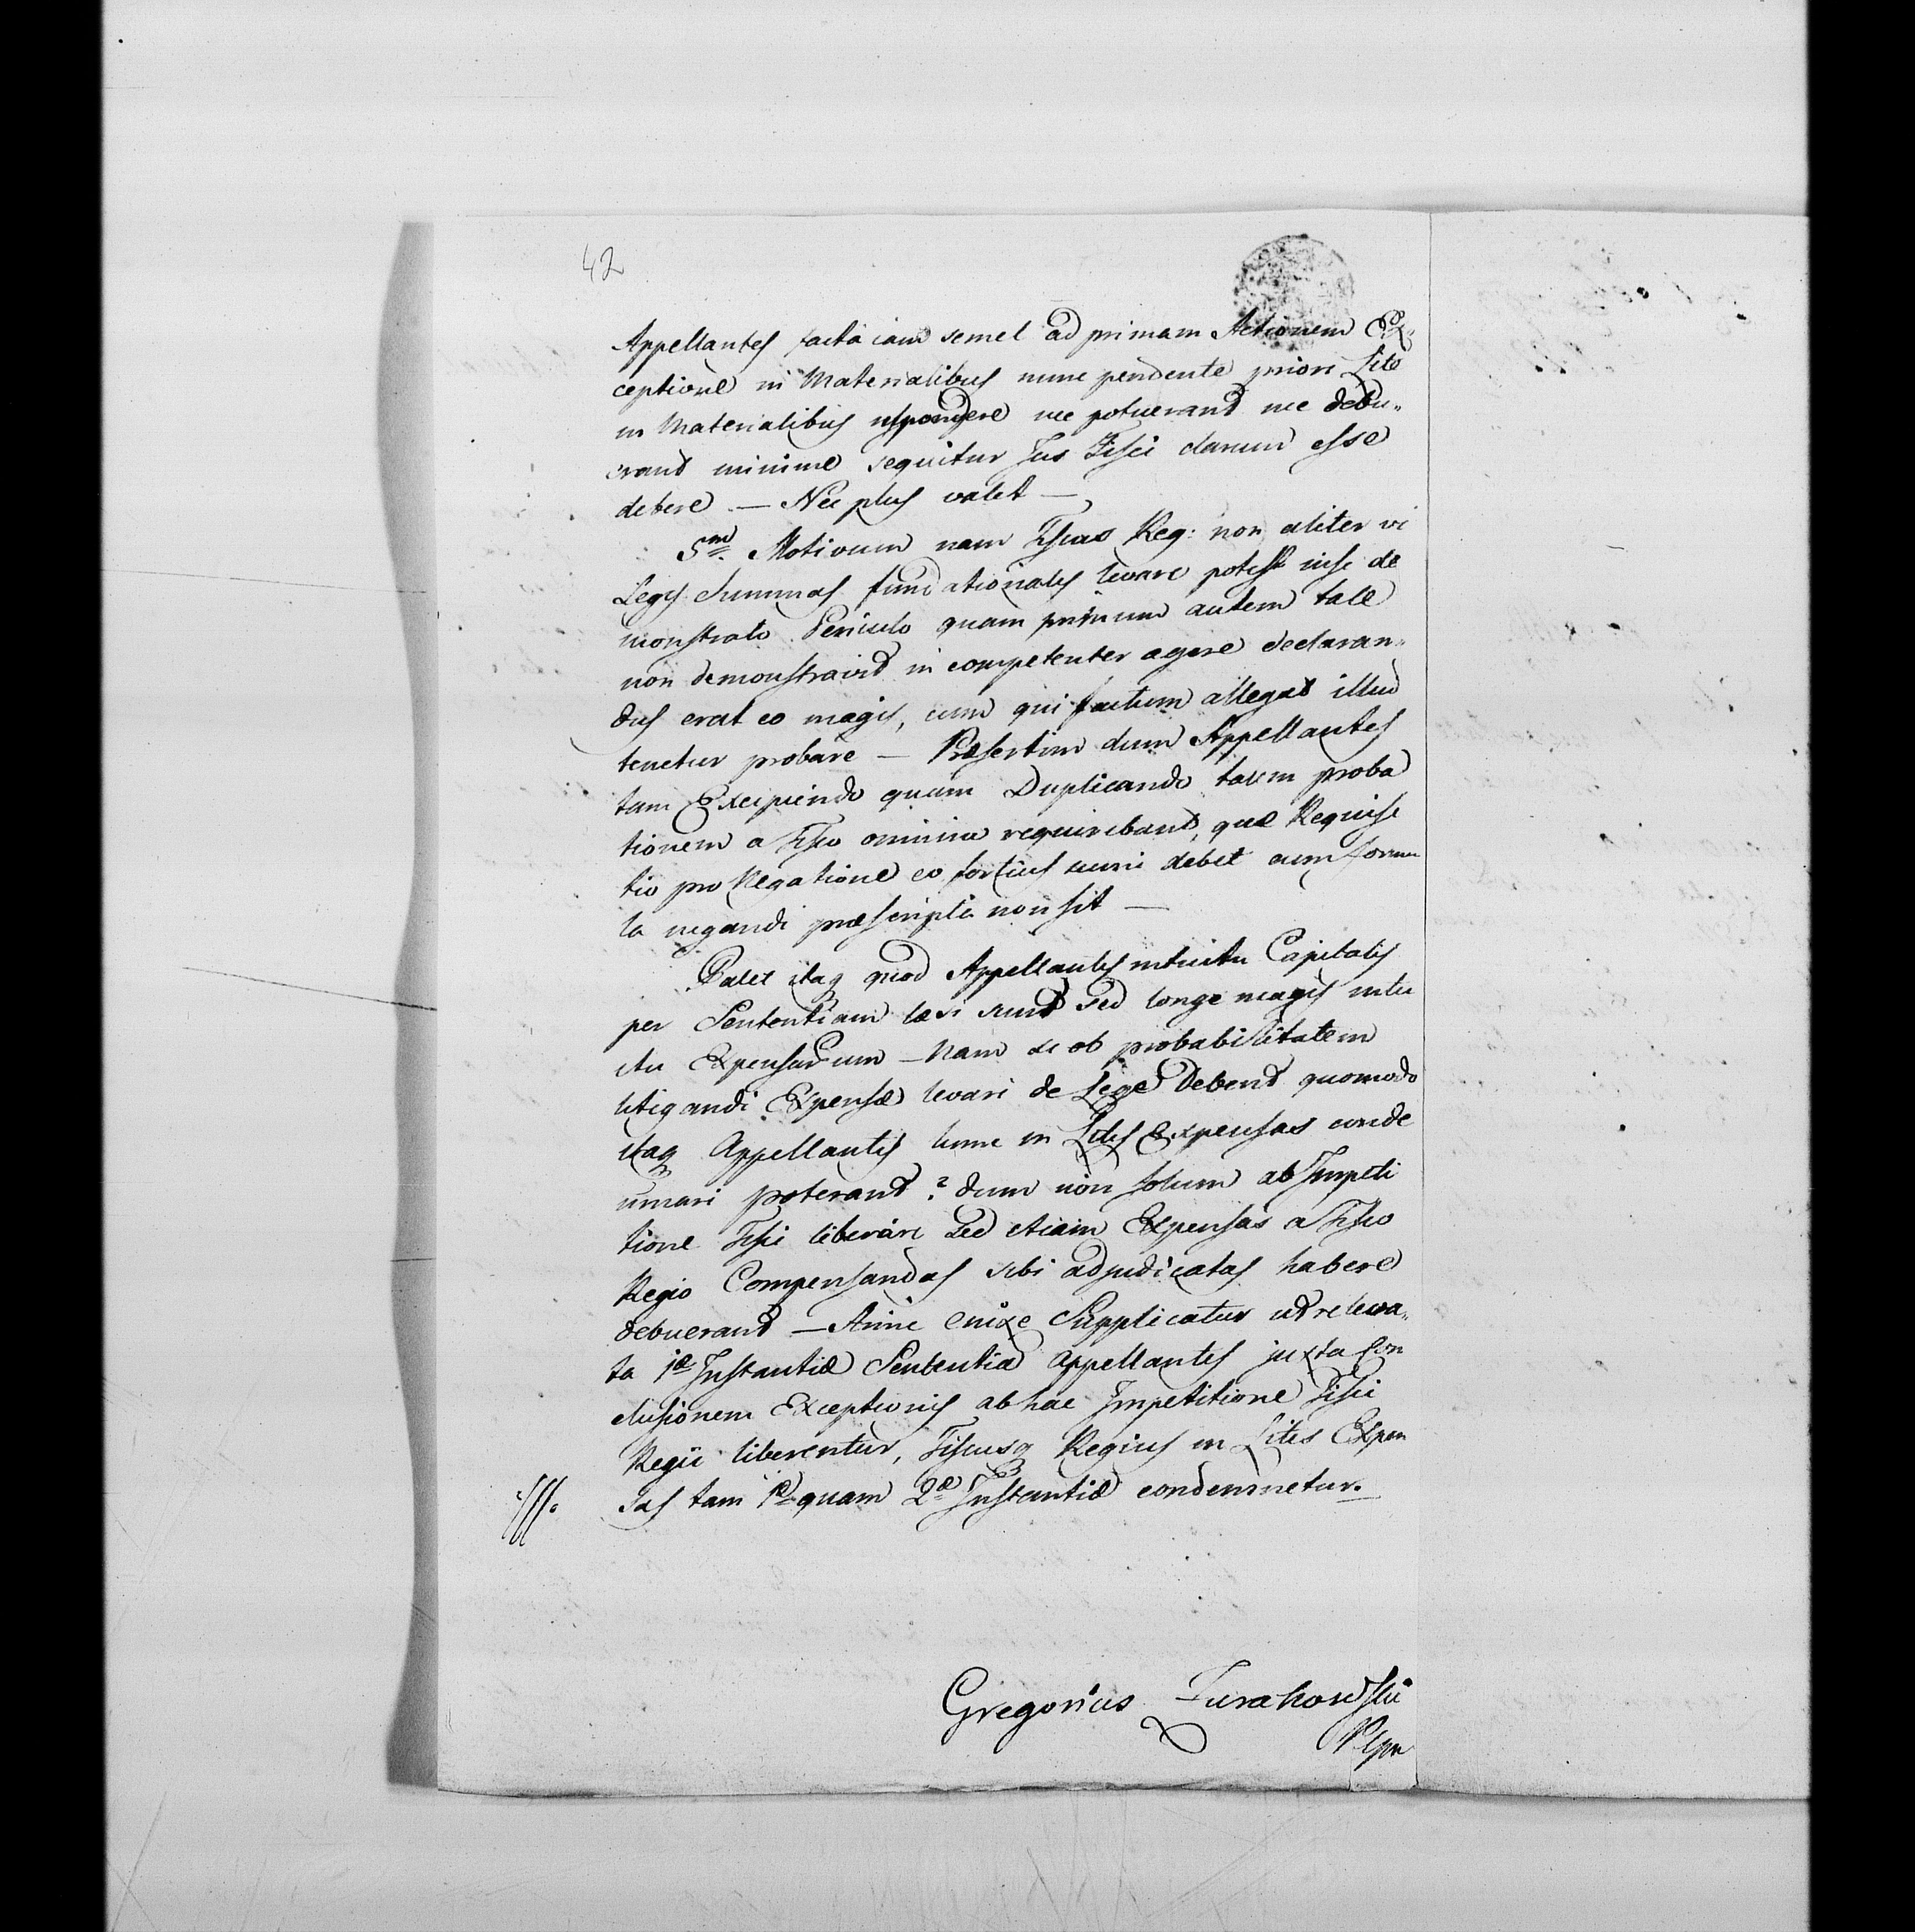 42
Appellantes facta iam semel ad primam Actionem Ex„
ceptione in Materialibus nunc pendente priori Lite
in Materialibus respondere nec potuerant nec debu„
erant minime sequitur Jus Fisci clarum esse
debere — Nec plus valet —
5m Motivum nam Fiscus Reg: non aliter vi
Legis Summas fundationales levare potest nisi de
monstrato Periculo quam primum autem tale
non demonstravit in competenter agere declaran„
dus erat eo magis, cum qui factum allegat illud
tenetur probare — Præsertim dum Appellantes
tam Excipiendo quam Duplicando talem proba
tionem a Fisco omnino requirebant, quæ Requisi
tio pro Negatione eo fortius sumi debet cum formu
la negandi præscripta non sit —
Patet itaq quod Appellantes intuitu Capitalis
per Sententiam læsi sunt sed longe magis intu
itu Expensarum — Nam si ob probabilitatem
litigandi Expensæ levari de Lege Debent quomodo
itaq Appellantes hunc in Litis Expensas conde
mnari poterant? dum non solum ab Impeti
tione Fisci liberari sed etiam Expensas a Fisco
Regio Compensandas sibi adjudicatas habere
debuerant — Hinc enixe Supplicatur ut releva„
ta 1æ Instantiæ Sententia Appellantes juxta Con
clusionem Exceptionis ab hac Impetitione Fisci
Regii liberentur, Fiscusq Regius in Litis Expen
sas tam 1æ quam 2æ Instantiæ condemnetur.
Gregorius Turakowski